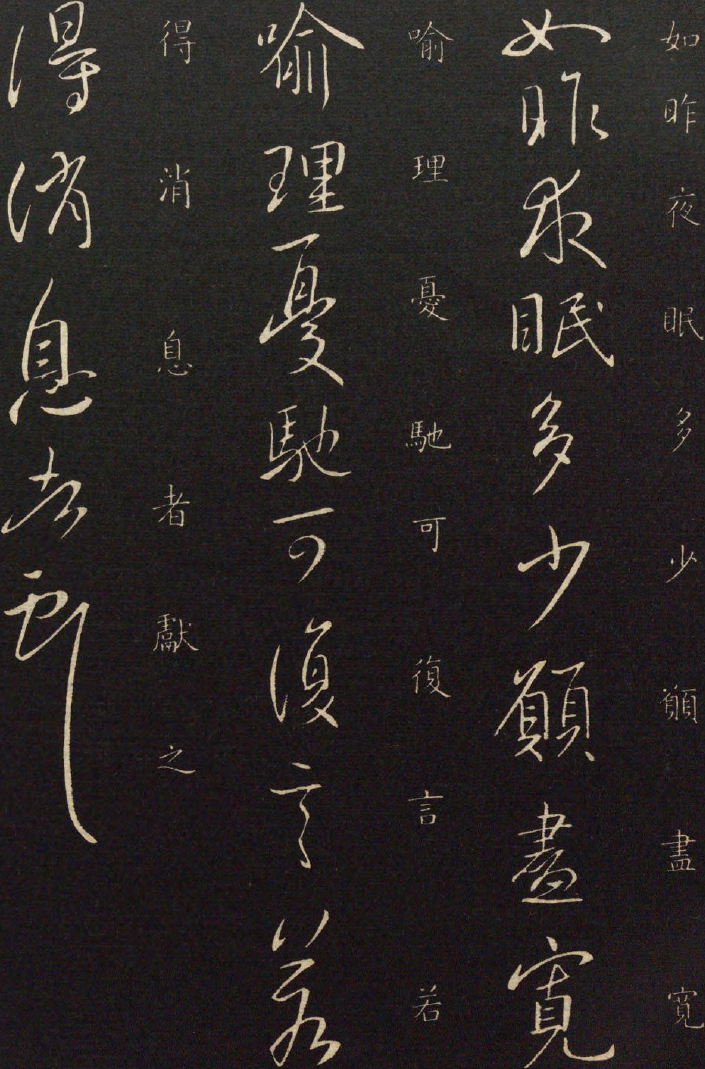 如昨夜眠多少願盡寬
如昨夜眠多少願盡寬
喻理憂馳可復言若
喻理憂馳可復言若
得消息者獻之
得消息者獻之